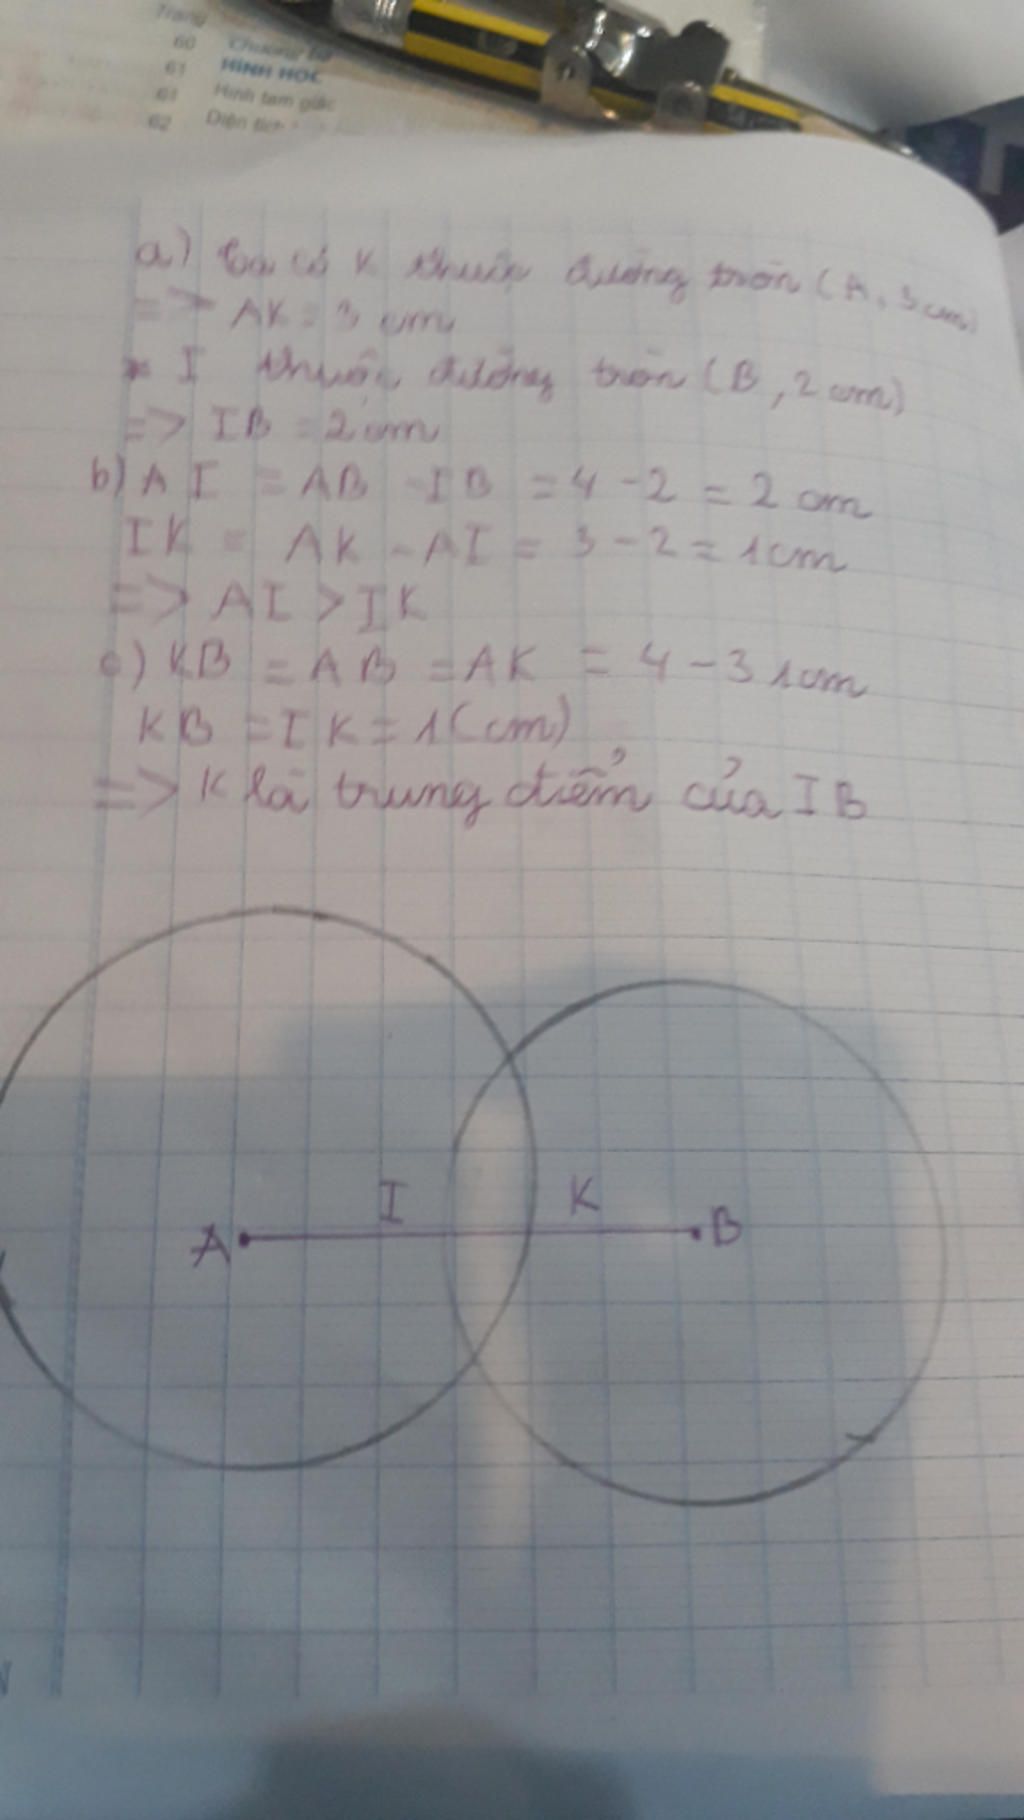 Trang
60 Chương ba
61 HÌNH HỌC
61 Hình tam giác
62 Diện tích
a) Ta có K thuộc đường tròn (A, 3cm)
=> AK = 3 cm
* I thuộc đường tròn (B, 2 cm)
=> IB = 2 cm
b) AI = AB - IB = 4 - 2 = 2 cm
IK = AK - AI = 3 - 2 = 1cm
=> AI > IK
c) KB = AB = AK = 4 - 3 1cm
KB = IK = 1(cm)
=> K là trung điểm của IB
I K
A B